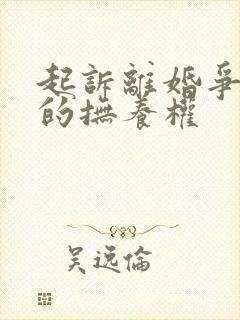 起訴離婚爭
的撫養權
吴逸倫